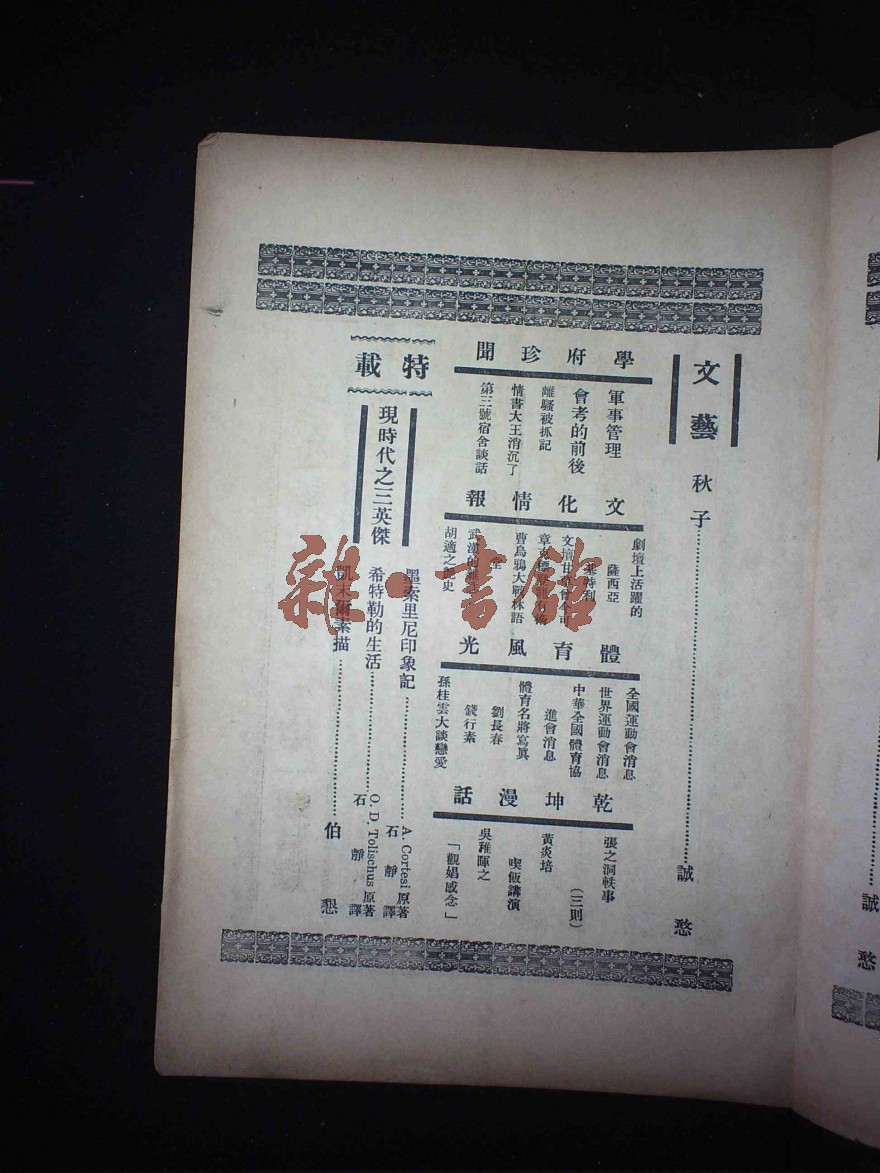 文藝
秋子……誠憨
學府珍聞
軍事管理
會考的前後
離騷被抓記
情書大王消沉了
第三號宿舍談話
文化情報
劇壇上活躍的
薩西亞
基特利
文壇甘草會今可
曹烏鴉大戰林語
堂
武漢的雜誌
胡適之艷史
體育風光
全國運動會消息
世界運動會消息
中華全國體育協
進會消息
體育名將寫真
劉長春
錢行素
孫桂雲大談戀愛
乾坤漫話
張之洞軼事
(三則)
黃炎培
喫飯講演
吳稚暉之
「觀娼感念」
特載
現時代之三英傑
墨索里尼印象記……A. Cortesi原著
石靜譯
希特勒的生活……O. D. Tolischus原著
石靜譯
凱末爾素描……伯懇
誠憨
雜·書館